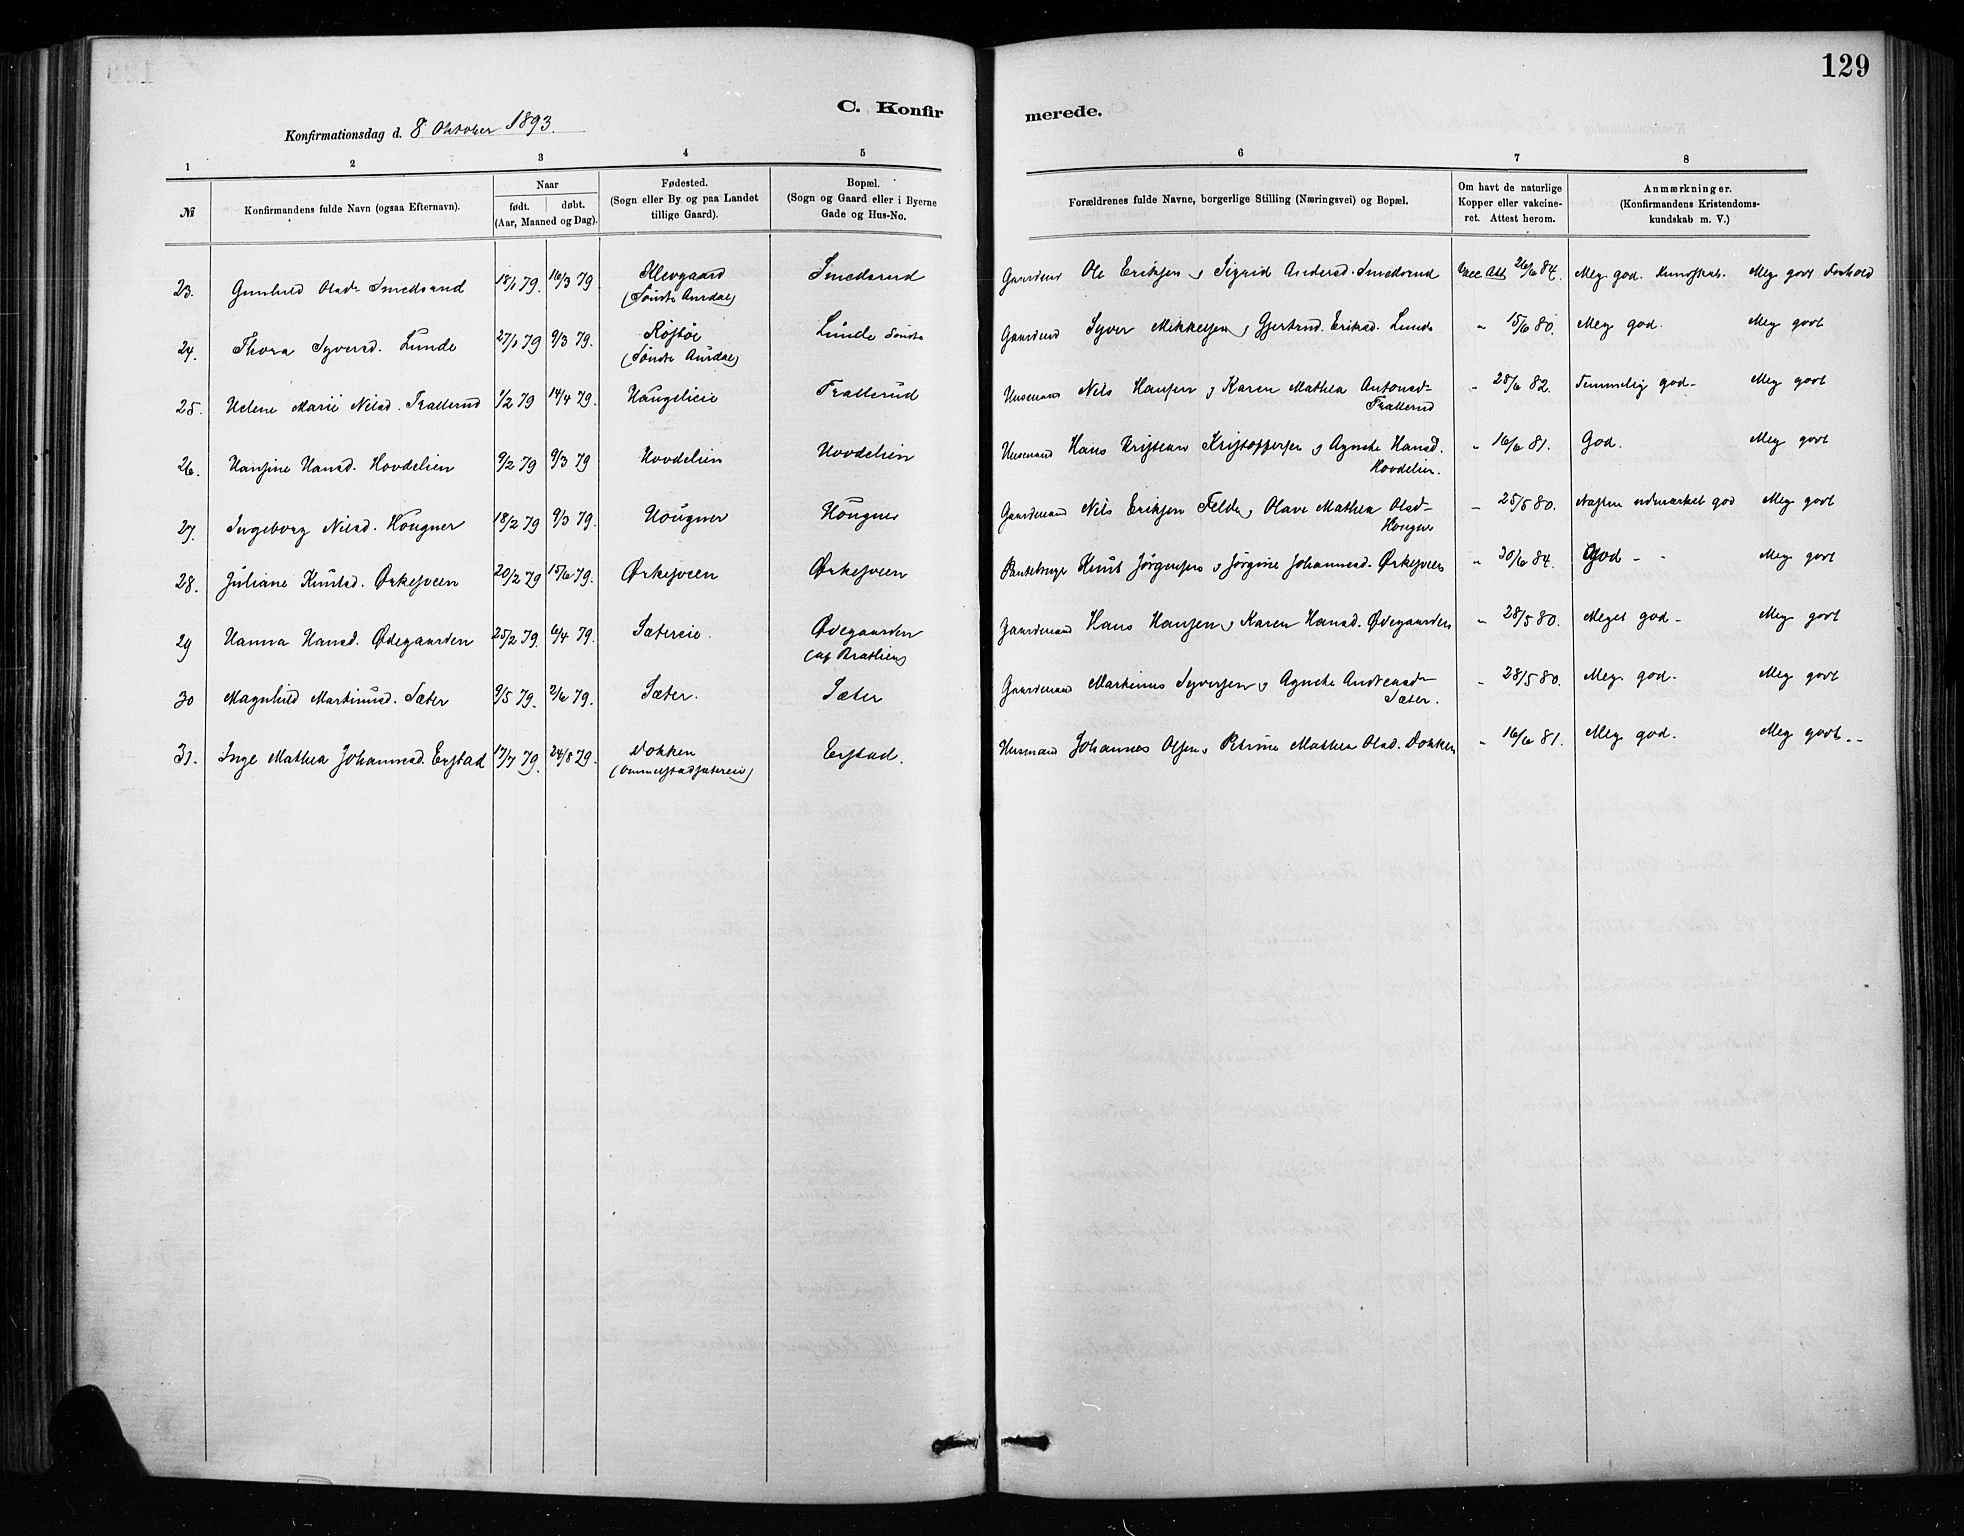 129
C. Konfirmerede.
Konfirmationsdag d. 8 Oktober 1893.
1 2 3 4 5 6 7 8
№ Konfirmandens fulde Navn (ogsaa Efternavn). Naar født. døbt. (Aar, Maaned og Dag). Fødested. (Sogn eller By og paa Landet tillige Gaard). Bopæl. (Sogn og Gaard eller i Byerne Gade og Hus-No. Forældrenes fulde Navne, borgerlige Stilling (Næringsvei) og Bopæl. Om havt de naturlige Kopper eller vakcineret. Attest herom. Anmærkninger. (Konfirmandens Kristendomskundskab m. V.)
23. Gunhild Olsd. Smedsrud 18/1 79. 16/3 79. Klevgaard (Søndre Aurdal) Smedsrud Gaardmd Ole Eriksen, Sigrid Andersd. Smedsrud Vacc Att 26/6 84. Meg. god Kundskab. Meg godt Forhold
24. Thora Syversd. Lunde 27/1 79 9/3 79. (Søndre Aurdal) Lunde Søndre Gaardmd Syver Mikkelsen, Gjertrud Eriksd. Lunde " 15/6 80. Meg god. Meg godt
25. Helene Marie Nilsd. Tratterud 1/2 79 14/4 79. Haugeleie Tratterud Husmand Nils Hansen, Karen Mathea Antonsd. Tratterud " 28/6 82. Temmelig god. Meg godt
26. Hansine Hansd. Hovdelien 9/2 79 9/3 79 Hovdelien Hovdelien Husmand Hans Kristian Kristoffersen, Agnethe Hansd. Hovdelien. " 16/6 81. God. Meg godt
27. Ingeborg Nilsd. Hougner 18/2 79 9/3 79. Hougner Hougner Gaardmand Nils Eriksen Felde, Olave Mathea Olsd. Hougner " 25/5 80. Næsten udmærket god Meg godt
28. Juliane Knutsd. Ørkesveen 20/2 79 15/6 79. Ørkesveen Ørkesveen Knut Jørgensen, Jørgine Johannesd. Ørkesveen " 30/6 84. God - - Meg godt
29 Hanna Hansd. Ødegaarden 25/2 79. 6/4 79. Sætereie. Ødegaarden (af Bratlien) Gaardmand Hans Hansen, Karen Hansd. Ødegaarden " 28/5 80. Meget god - Meg godt
30 Magnhild Martinusd. Sæter 9/5 79. 2/6 79. Sæter. Sæter Gaardmand Martinus Syversen, Agnethe Andreasd. Sæter. " 28/5 80. Meg god. Meg godt
31. Inge Mathea Johannesd. Erstad 17/7 79. 24/8 79. Dokken Erstad. Husmand Johannes Olsen, Petrine Mathea Olsd. Dokken " 16/6 81. Meg god. Meg godt. -